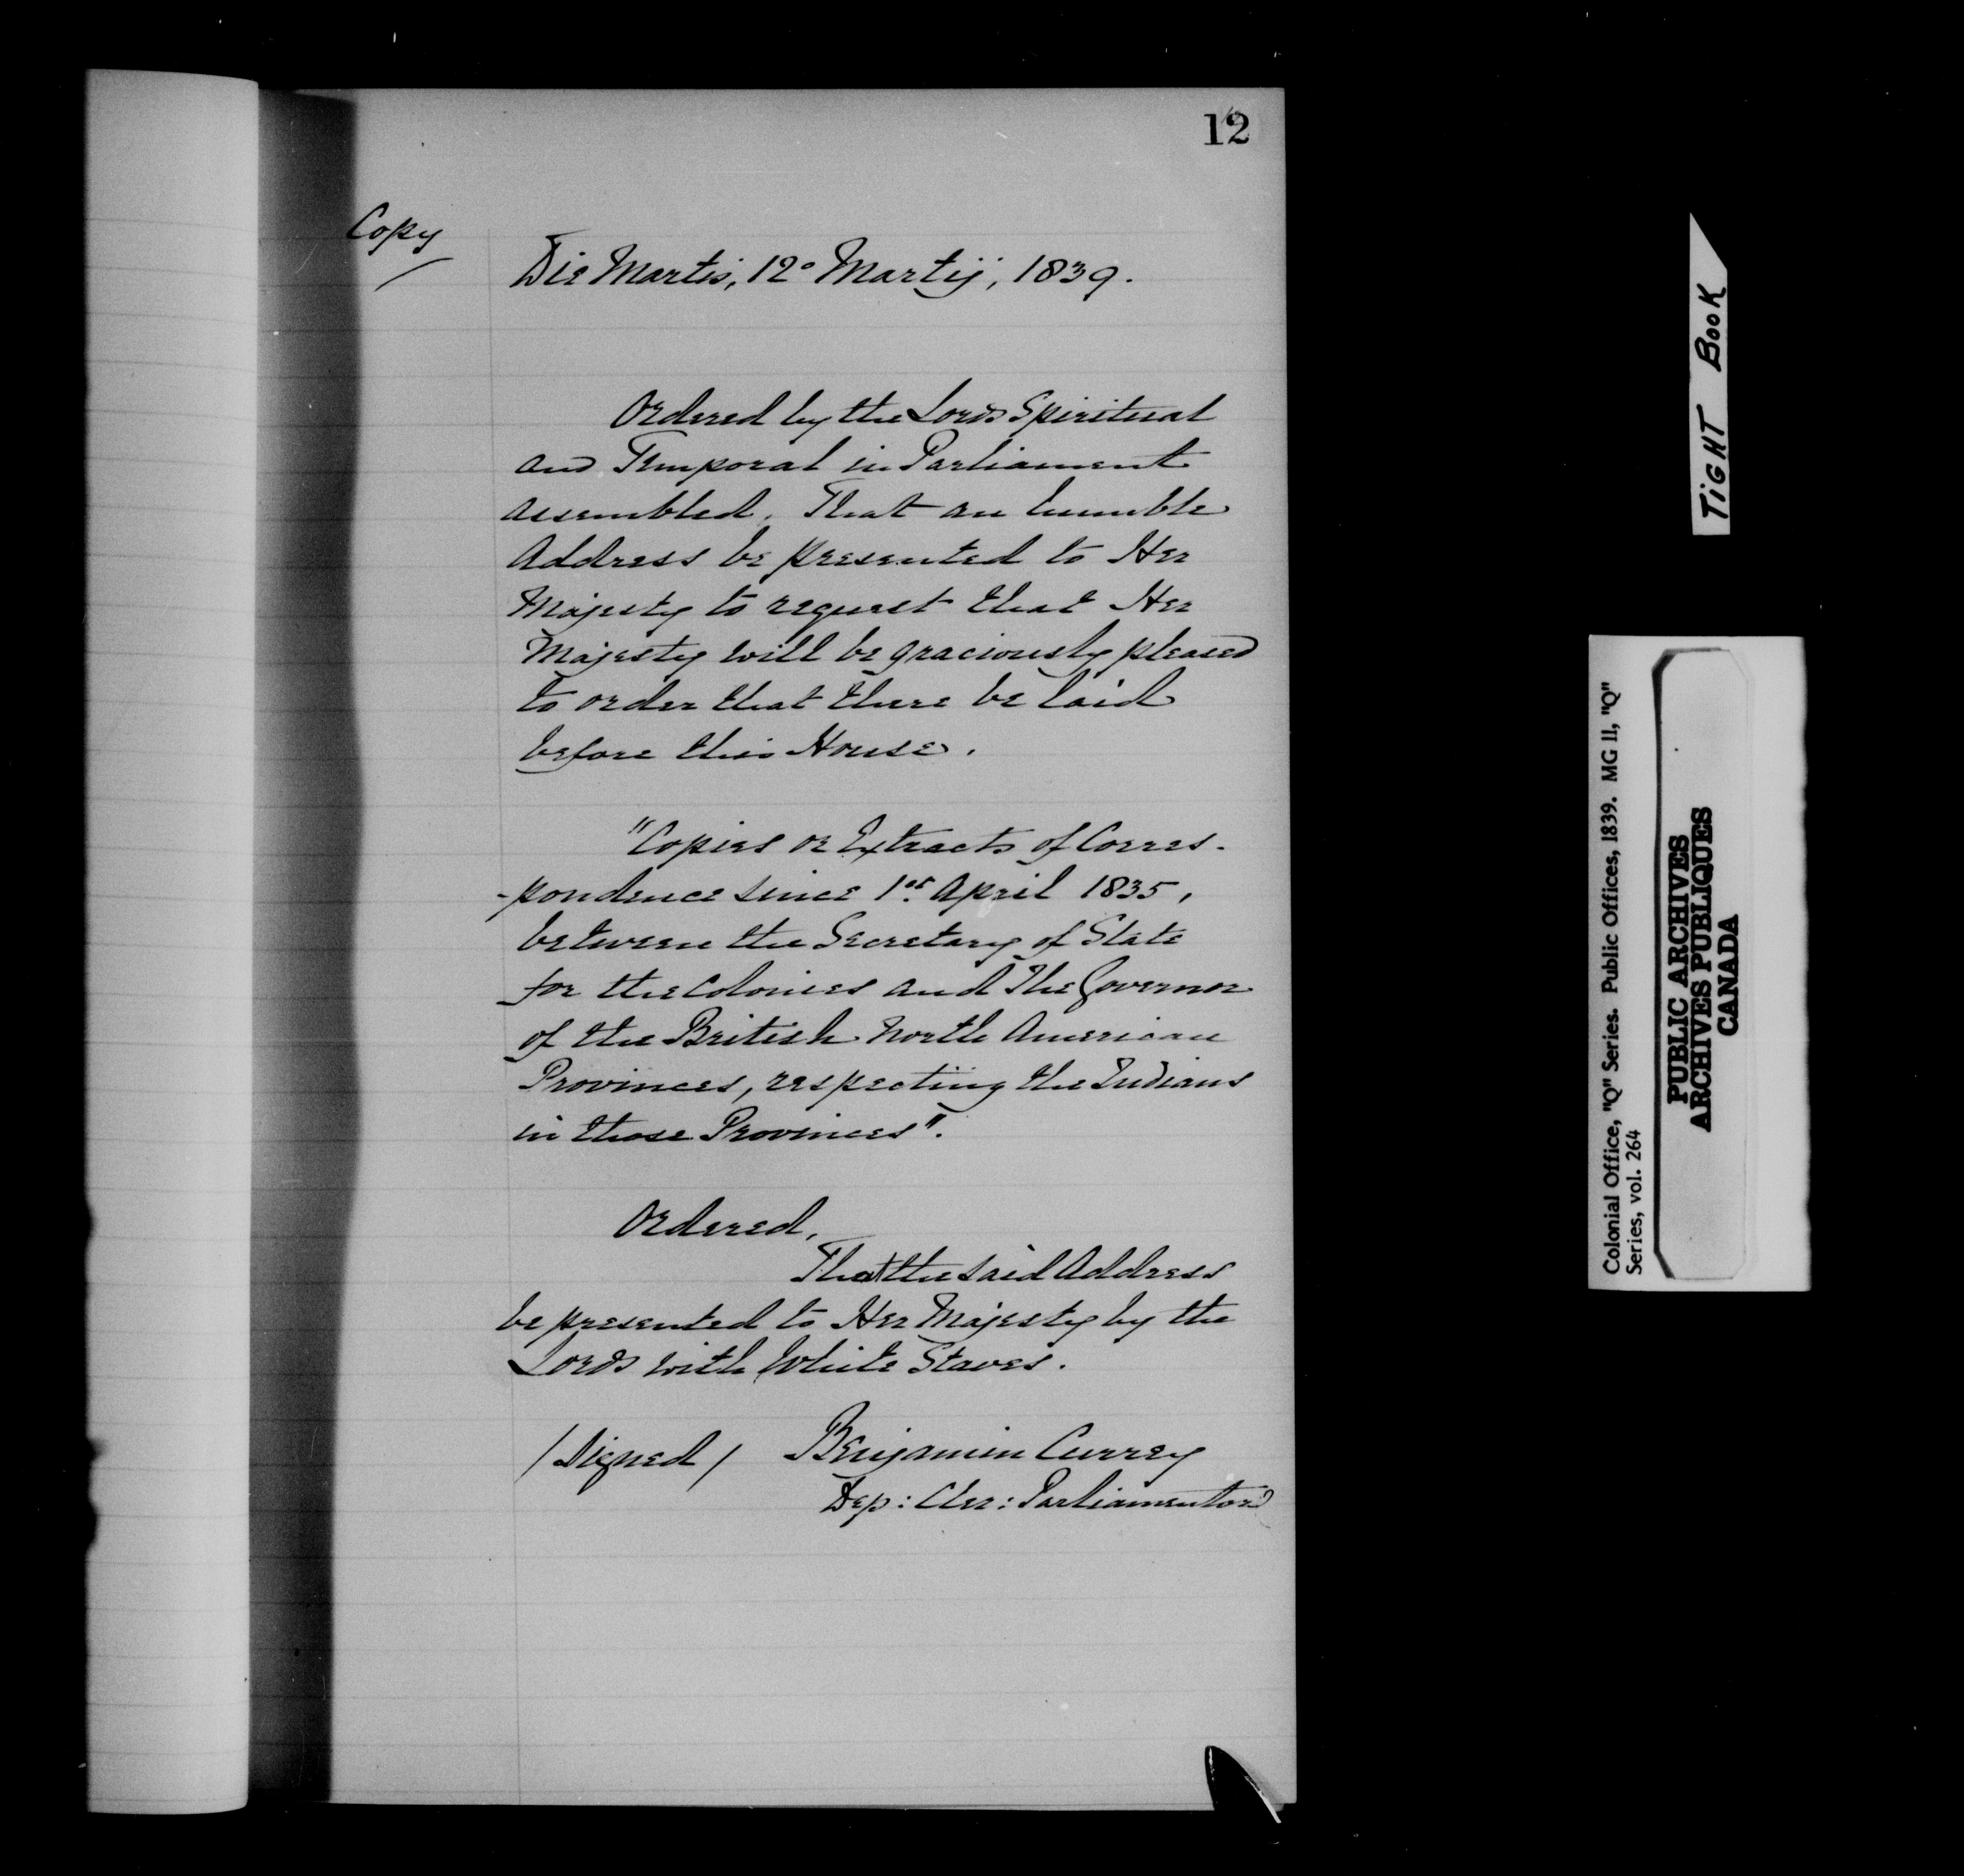 12
Copy
Die Martis, 12º Martij, 1839.
Ordered by the Lords Spiritual
and Temporal in Parliament
assembled. That an humble
Address be presented to Her
Majesty to request that Her
Majesty will be graciously pleased
to order that there be laid
before this House.
"Copies or Extracts of Corres-
-pondence since 1st. April 1835,
between the Secretary of State
for the Colonies and the Governor
of the British North American
Provinces, respecting the Indians
in those Provinces".
Ordered,
That the said Address
be presented to Her Majesty by the
Lords with White Staves.
/Signed/ Benjamin Currey
Dep: Cler: Parliamentor
TIGHT BOOK
Colonial Office, "Q" Series. Public Offices, 1839. MG 11, "Q"
Series, vol. 264
PUBLIC ARCHIVES
ARCHIVES PUBLIQUES
CANADA